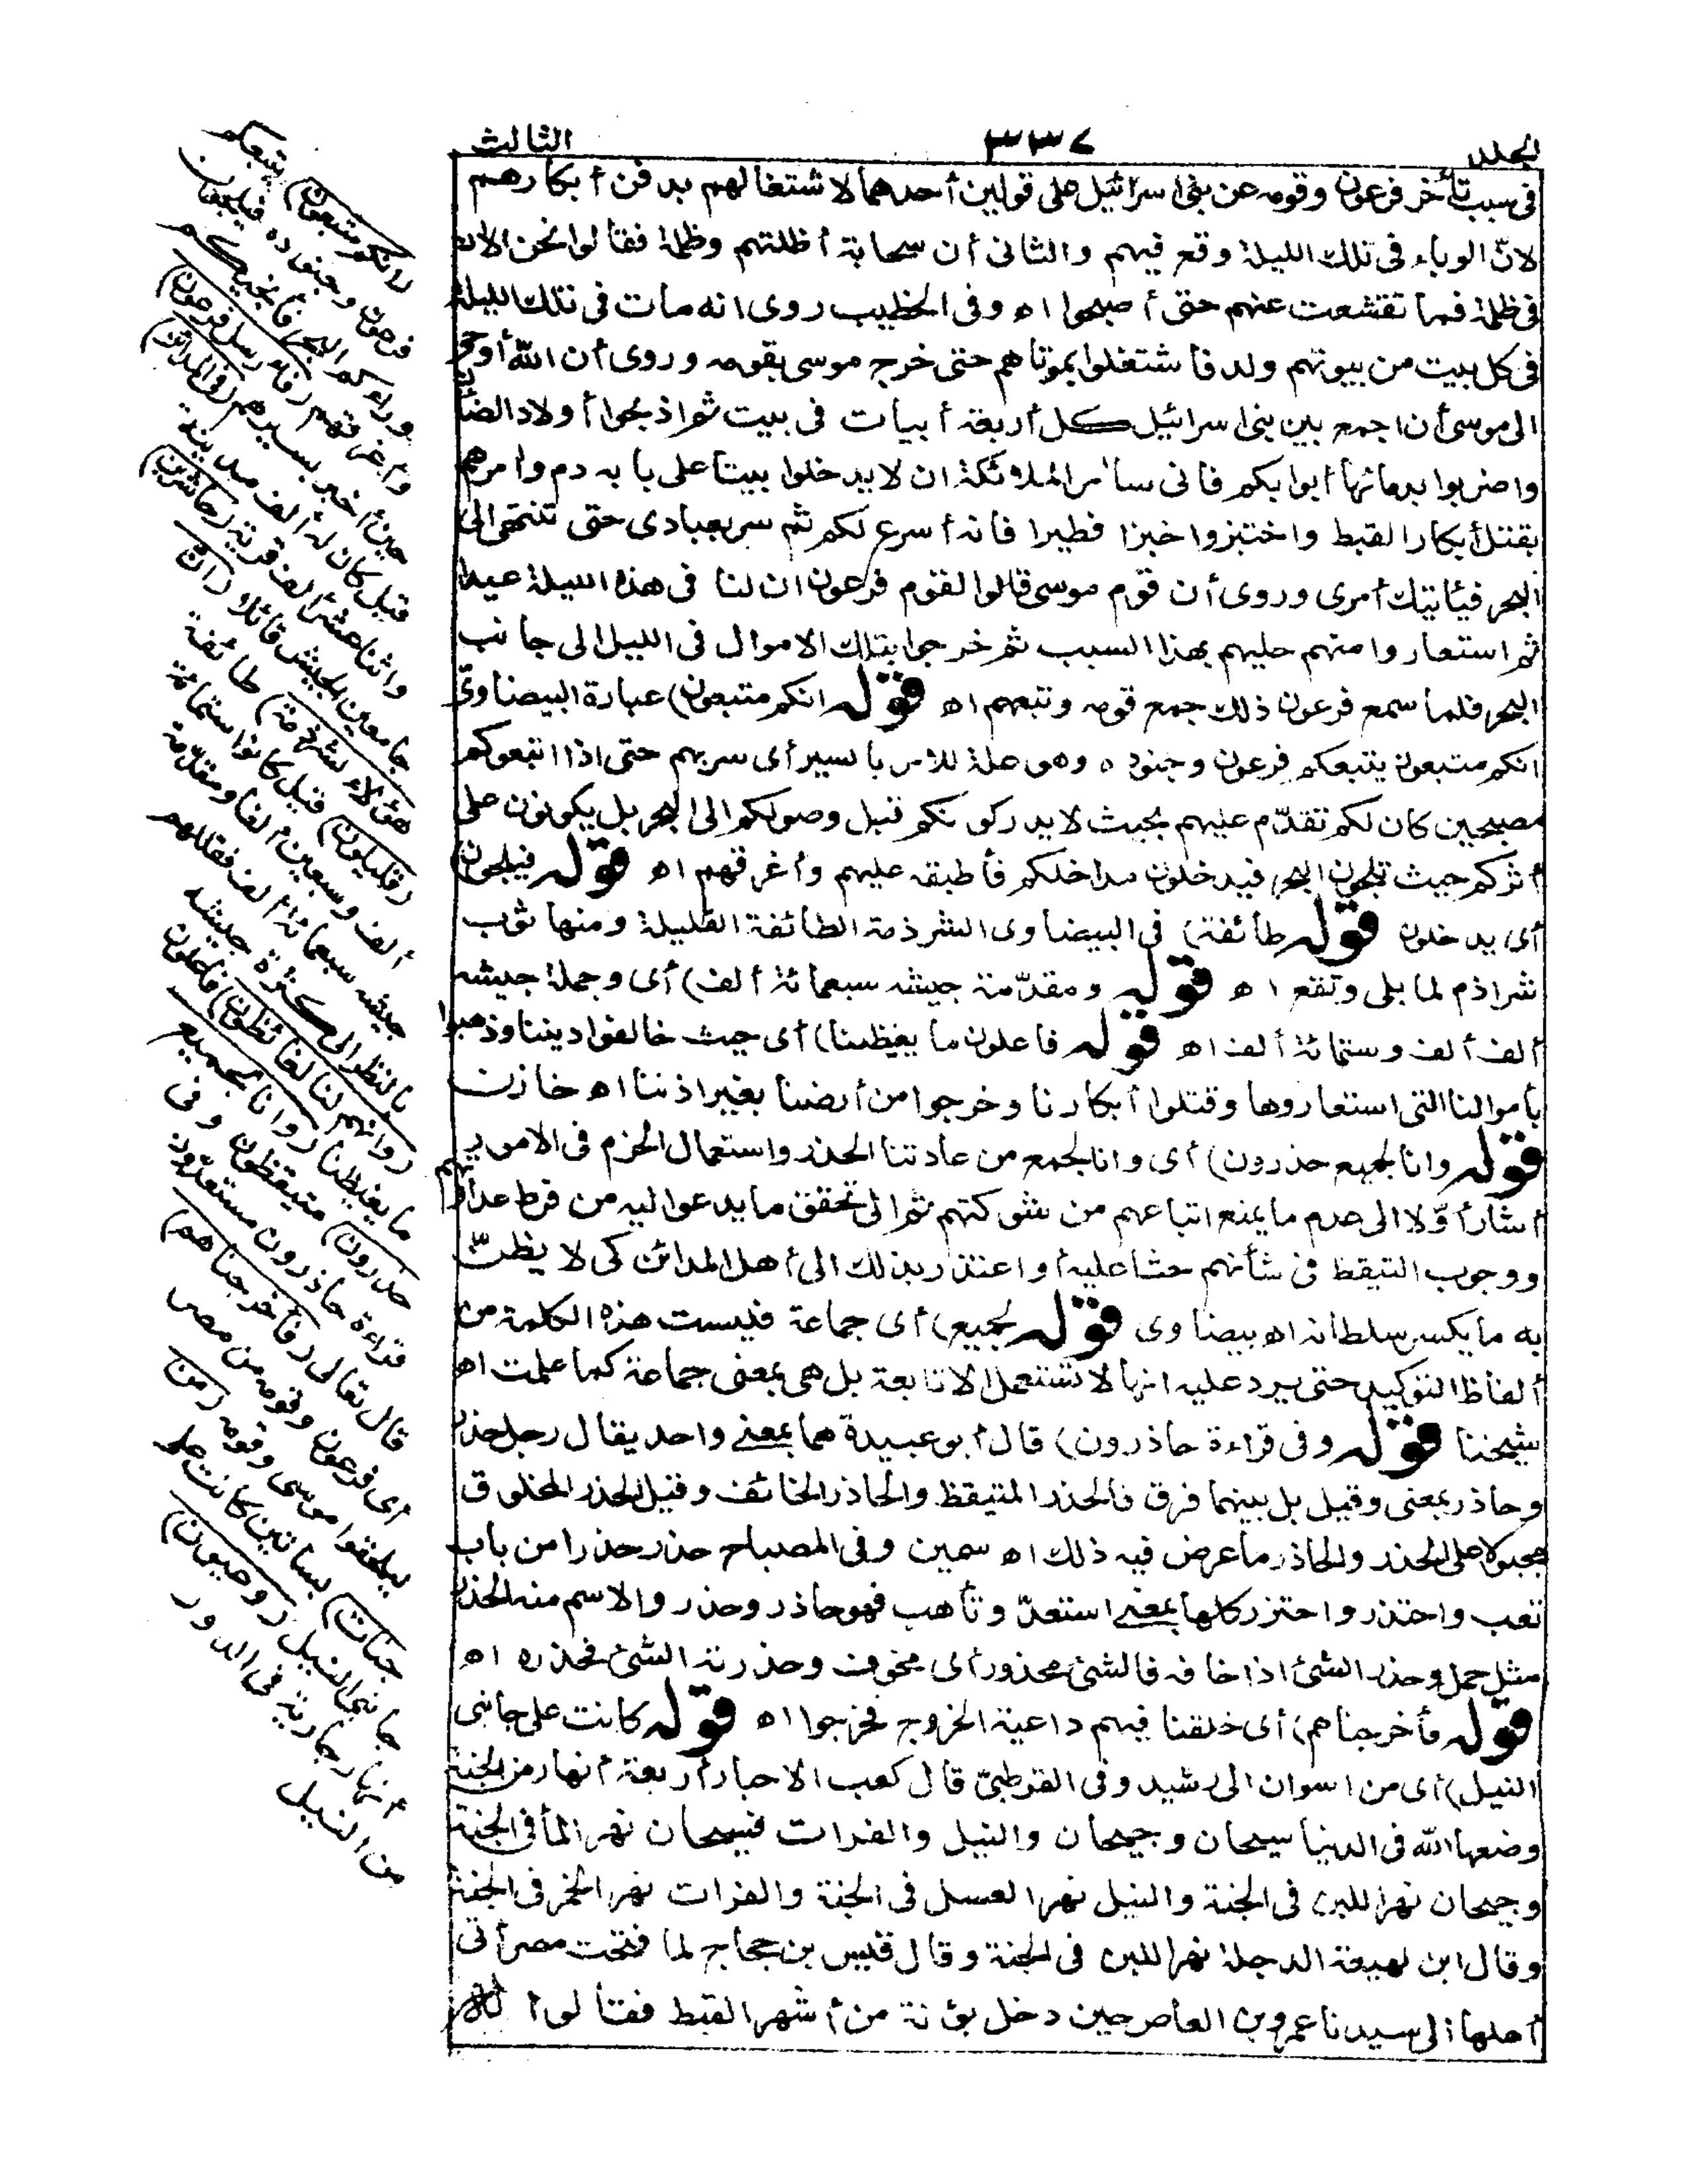 المجلد ٣٣٧ الثالث
فى سبب تأخر فرعون وقومه عن بنى اسرائيل على قولين أحدهما لاشتغالهم بدفن أبكارهم
لانّ الوباء فى تلك الليلة وقع فيهم والثانى أن سحابة أظلتهم وظلمة فقالوا نحن الآن
فى ظلمة فما تقشعت عنهم حتى أصبحوا اه وفى الخطيب روى انه مات فى تلك الليلة
فى كل بيت من بيوتهم ولد فاشتغلوا بموتاهم حتى خرج موسى بقومه وروى أن الله أوحى
الى موسى أن اجمع بين بنى اسرائيل كل أربعة أبيات فى بيت ثم اذبحوا أولاد الضأن
واضربوا بدمائها أبوابكم فانى سآمر الملائكة ان لا يدخلوا بيتا على بابه دم وآمرهم
بقتل أبكار القبط واختبزوا خبزا فطيرا فانه أسرع لكم ثم سر بعبادى حتى تنتهى الى
البحر فيأتيك أمرى وروى أن قوم موسى قالوا لقوم فرعون ان لنا فى هذه الليلة عيدا
ثم استعاروا منهم حليهم بهذا السبب ثم خرجوا بتلك الاموال فى الليل الى جانب
البحر فلما سمع فرعون ذلك جمع قومه وتبعهم اه قوله انكم متبعون) عبارة البيضاوىّ
انكم متبعون يتبعكم فرعون وجنوده وهو علة للامر بالسير أى سر بهم حتى اذا اتبعوكم
مصبحين كان لكم تقدّم عليهم بحيث لا يدركونكم قبل وصولكم الى البحر بل يكونون على
أثركم حيث تلجون البحر فيدخلون مداخلكم فأطبقه عليهم وأغرقهم اه قوله فيلجون)
أى يدخلون قوله طائفة) فى البيضاوى الشرذمة الطائفة القليلة ومنها ثوب
شراذم لما بلى وتقع اه قوله ومقدّمة جيشه سبعمائة ألف) أى وجملة جيشه
ألف ألف وستمائة ألف اه قوله فاعلون ما يغيظنا) أى حيث خالفوا ديننا وذهبوا
بأموالنا التى استعاروها وقتلوا أبكارنا وخرجوا من أرضنا بغير اذننا اه خازن
قوله وانا لجميع حذرون) أى وانا لجمع من عادتنا الحذر واستعمال الحزم فى الامور
أشار أوّلا الى عدم ما يمنع اتباعهم من شوكتهم ثم الى تحقق ما يدعو اليه من فرط عداوتهم
ووجوب التيقظ فى شأنهم حثا عليه أو اعتذر بذلك الى أهل المدائن كى لا يظنّ
به ما يكسر سلطانه اه بيضاوى قوله لجميع) أى جماعة فليست هذه الكلمة من
ألفاظ التوكيد حتى يرد عليه انها لا تستعمل الا تابعة بل هى بمعنى جماعة كما علمت اه
شيخنا قوله وفى قراءة حاذرون) قال أبو عبيدة هما بمعنى واحد يقال رجل حذر
وحاذر بمعنى وقيل بل بينهما فرق فالحذر المتيقظ والحاذر الخائف وقيل الحذر المخلوق
مجبولا على الحذر والحاذر ما عرض فيه ذلك اه سمين وفى المصباح حذر حذرا من باب
تعب واحتذر واحترز كلها بمعنى استعدّ وتأهب فهو حاذر وحذر والاسم منه الحذر
مثل حمل وحذر الشئ اذا خافه فالشئ محذور أى مخوف وحذرته الشئ فحذره اه
قوله فأخرجناهم) أى خلقنا فيهم داعية الخروج فخرجوا اه قوله كانت على جانبى
النيل) أى من اسوان الى رشيد وفى القرطبىّ قال كعب الاحبار أربعة أنهار من الجنة
وضعها الله فى الدنيا سيحان وجيحان والنيل والفرات فسيحان نهر الماء فى الجنة
وجيحان نهر اللبن فى الجنة والنيل نهر العسل فى الجنة والفرات نهر الخمر فى الجنة
وقال ابن لهيعة الدجلة نهر اللبن فى الجنة وقال قيس بن حجاج لما فتحت مصر أتى
أهلها الى سيدنا عمرو بن العاص حين دخل بؤنة من أشهر القبط فقالوا
(انكم متبعون) يتبعكم
فرعون وجنوده فيلجون
وراءكم البحر فأنجيكم
وأغرقهم (فأرسل فرعون)
حين أخبر بسيرهم (فى المدائن)
قيل كان له ألف مدينة
واثنا عشر ألف قرية (حاشرين)
جامعين الجيش قائلا (انّ
هؤلاء لشرذمة) طائفة
(قليلون) قيل كانوا ستمائة
ألف وسبعين ألفا ومقدّمة
جيشه سبعمائة ألف فقللهم
بالنظر الى كثرة جيشه
(وانهم لنا لغائظون) فاعلون
ما يغيظنا (وانا لجميع
حذرون) متيقظون وفى
قراءة حاذرون مستعدّون
قال تعالى (فأخرجناهم)
أى فرعون وقومه من مصر
ليلحقوا موسى وقومه (من
جنات) بساتين كانت على
جانبى النيل (وعيون)
أنهار جارية فى الدور
من النيل